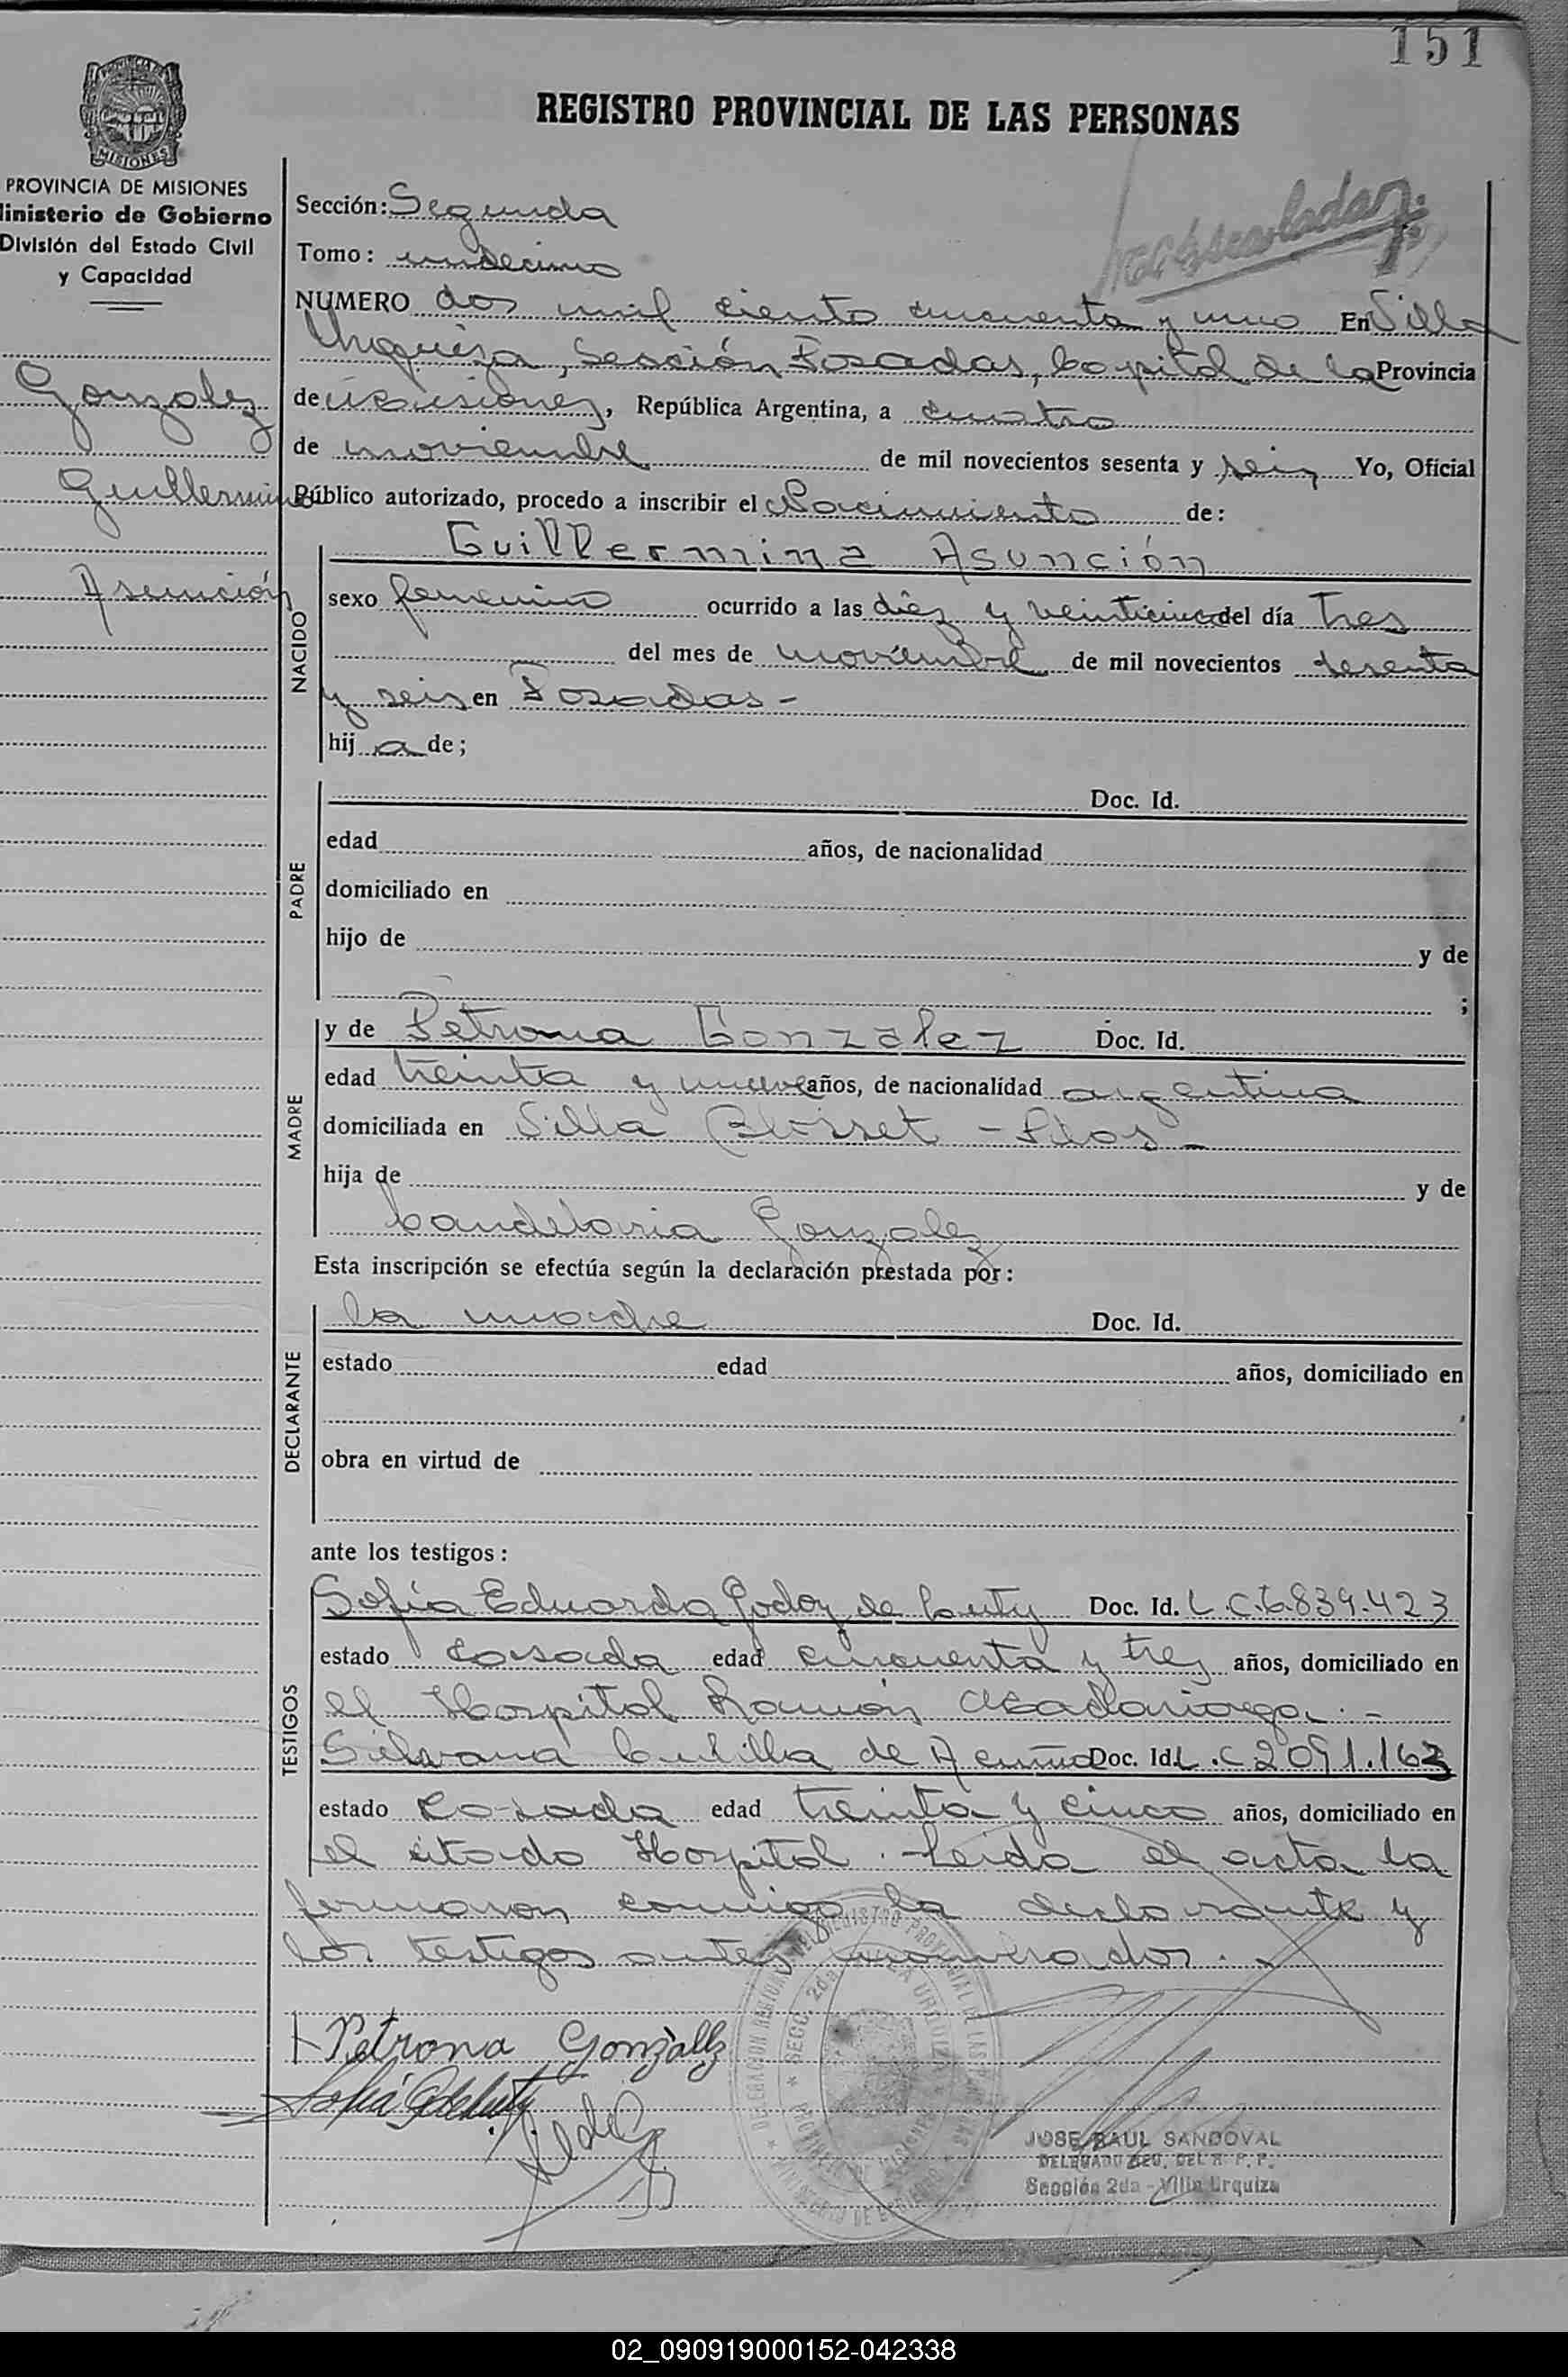 151
REGISTRO PROVINCIAL DE LAS PERSONAS
MISIONES
PROVINCIA DE MISIONES
Ministerio de Gobierno
División del Estado Civil
y Capacidad
Gonzalez
Guillermina
Asunción
Sección: Segunda
Tomo: undecimo
NUMERO dos mil ciento cincuenta y uno En Villa
Urquiza, Sección Posadas, Capital de la Provincia
de Misiones, República Argentina, a cuatro
de noviembre de mil novecientos sesenta y seis Yo, Oficial
Público autorizado, procedo a inscribir el Nacimiento de:
NACIDO
Guillermina Asunción
sexo femenino ocurrido a las diez y veinticinco del día tres
del mes de noviembre de mil novecientos sesenta
y seis en Posadas -
hij a de;
PADRE
Doc. Id.
edad años, de nacionalidad
domiciliado en
hijo de y de
;
MADRE
y de Petrona Gonzalez Doc. Id.
edad treinta y nueve años, de nacionalidad argentina
domiciliada en Villa Blosset - Pdas -
hija de y de
Candelaria Gonzalez
Esta inscripción se efectúa según la declaración prestada por:
DECLARANTE
la madre Doc. Id.
estado edad años, domiciliado en
,
obra en virtud de
ante los testigos:
TESTIGOS
Sofia Eduarda Godoy de Doc. Id. L.C.6.839.423
estado casada edad cincuenta y tres años, domiciliado en
el Hospital Ramón Madariaga. -
Silvana de Acuña Doc. Id. L.C 2091.163
estado casada edad treinta y cinco años, domiciliado en
el citado Hospital. Leida el acta la
firmaron conmigo la declarante y
los testigos antes nombrados. -
Petrona Gonzàlez
Sofiá
JOSE RAUL SANDOVAL
DELEGADO REG. DEL R. P. P.
Sección 2da - Villa Urquiza
02_090919000152-042338